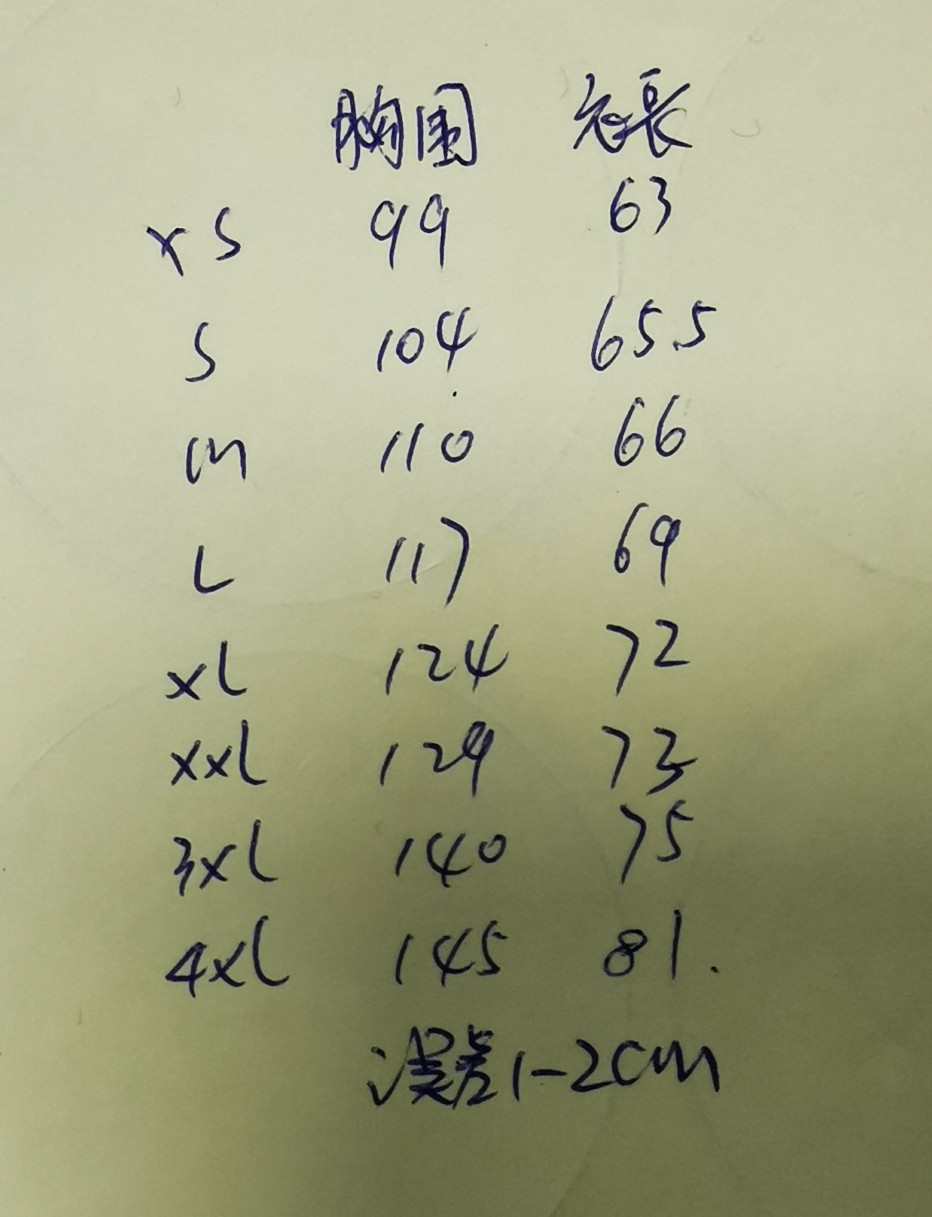 胸围 衣长
XS 99 63
S 104 65.5
M 110 66
L 117 69
XL 124 72
XXL 129 73
3XL 140 75
4XL 145 81.
误差1-2cm